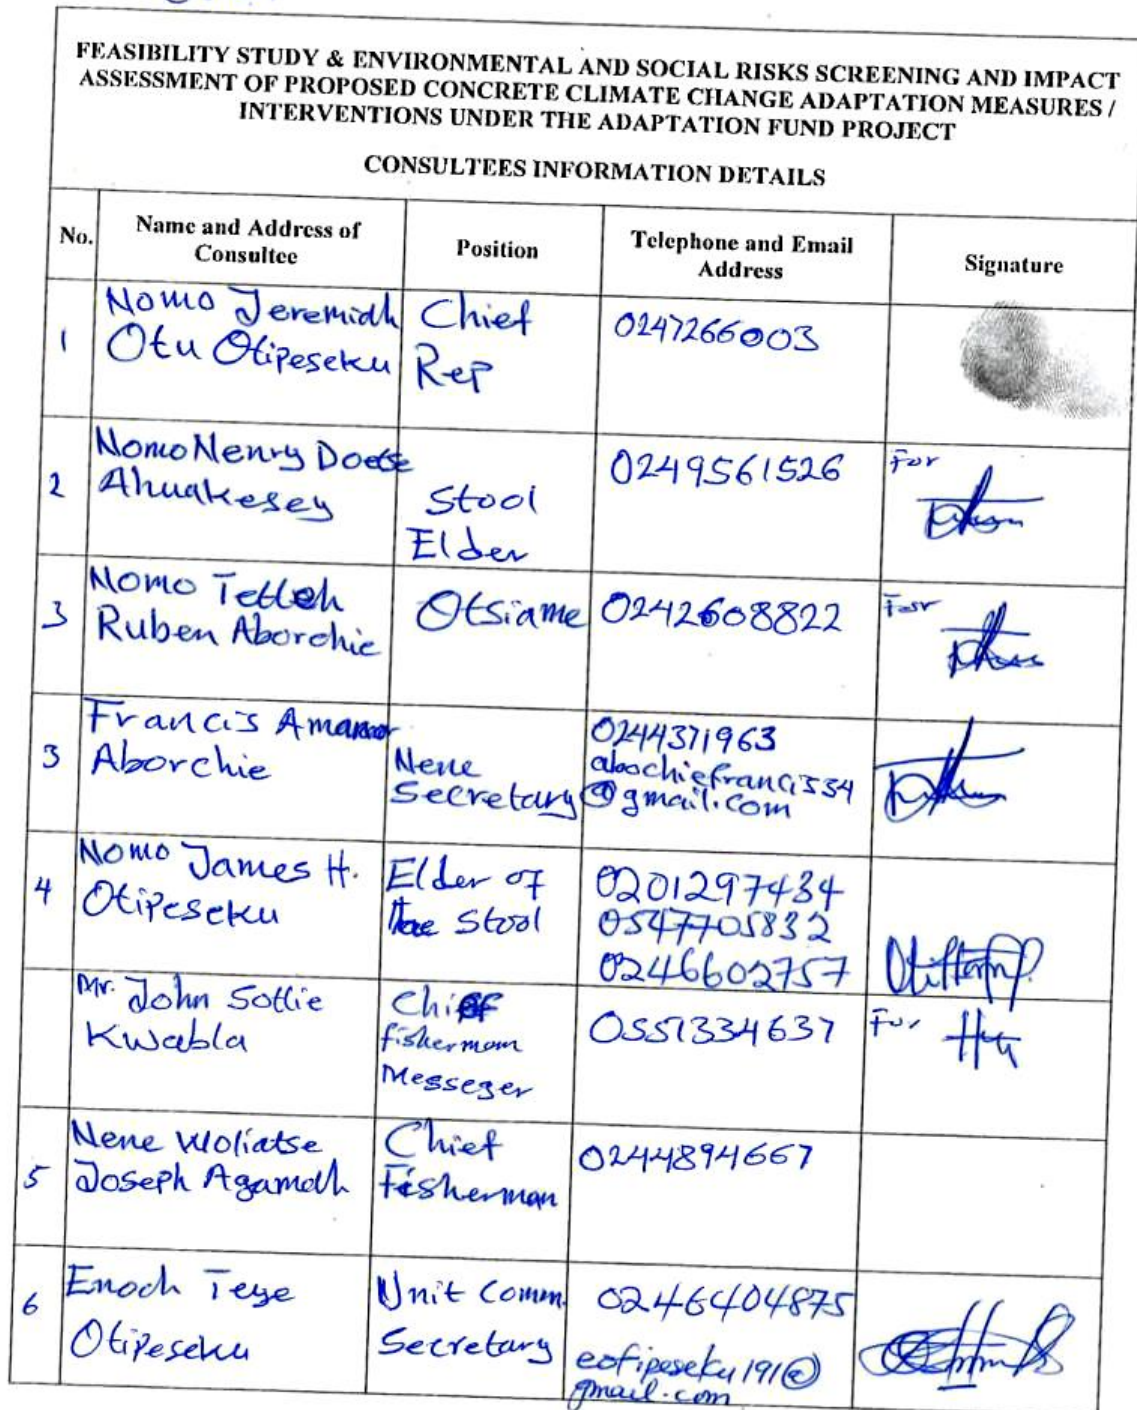 FEASIBILITY STUDY & ENVIRONMENTAL AND SOCIAL RISKS SCREENING AND IMPACT
ASSESSMENT OF PROPOSED CONCRETE CLIMATE CHANGE ADAPTATION MEASURES /
INTERVENTIONS UNDER THE ADAPTATION FUND PROJECT
CONSULTEES INFORMATION DETAILS
No.
Name and Address of
Consultee
Position
Telephone and Email
Address
Signature
1
Nomo Jeremiah
Otu Otipeseku
Chief
Rep
0247266003
2
Nomo Nenry Doetse
Ahuakesey
Stool
Elder
0249561526
For
3
Nomo Tetteh
Ruben Aborchie
Otsiame
0242608822
For
3
Francis Amanor
Aborchie
Nene
Secretary
0244371963
abochiefrancis34
@gmail.com
4
Nomo James H.
Otipeseku
Elder of
the Stool
0201297434
0547705832
0246602757
Mr. John Sottie
Kwabla
Chief
fishermam
Messeger
0551334637
For
5
Nene Woliatse
Joseph Agamah
Chief
Fisherman
0244894667
6
Enoch Teye
Otipeseku
Unit Comm.
Secretary
0246404875
eotipeseku191@
gmail.com